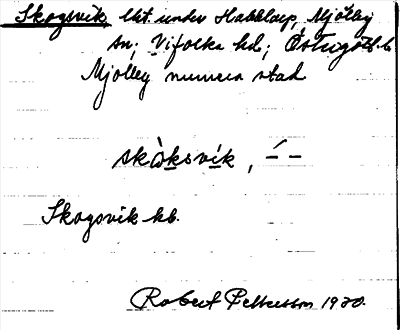 Skogsvik lht. under Habblarp, Mjölby
sn; Vifolka hd; Östergötl. l.
Mjölby numera stad
skò̀ksvík, –́ –
Skogsvik kb.
Robert Pettersson 1930.